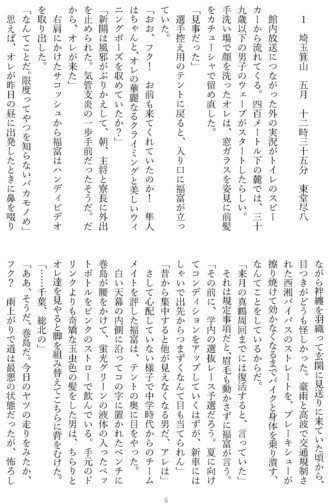 １　埼玉箕山　五月　十二時三十五分　東堂尽八
館内放送につながった外の実況がトイレのスピー
カーから流れてくる。四百メートル下の麓では、三十
九歳以下の男子のウェーブがスタートしたらしい。
手洗い場で顔を洗ったオレは、窓ガラスを姿見に前髪
をカチューシャで留め直した。
「見事だった」
選手控え用のテントに戻ると、入り口に福富が立っ
ていた。
「おお、フク！　お前も来てくれていたのか！　隼人
はちゃんと、オレの華麗なるクライミングと美しいウィ
ニングポーズを収めていたか？」
「新開は風邪がぶりかえして、朝、主将と寮長に外出
を止められた。気管支炎の一歩手前だったそうだ。だ
から、オレが来た」
右肩にかけたサコッシュから福富はハンディビデオ
を取り出した。
「なんてことだ。限度ってやつを知らないバカモノめ」
思えば、オレが昨日の昼に出発したときに鼻を啜り
ながら袢纏を羽織って玄関に見送りに来ていた頃から、
目つきがどうも怪しかった。豪雨と高波で交通規制さ
れた西湘バイパスのストレートを、ブレーキシューが
擦り焼けて効かなくなるまでバイクと身体を乗り潰す、
なんてことをしているからだ。
「来月の真鶴周回までには復活すると、言っていた」
それは規定事項だと、眉も動かさずに福富が言う。
「その前に、学内の選抜レース予選だろう。夏に向け
てコンディションをアップしていくはずが、新車には
しゃいで出先からつまずくなんて目も当てられん」
「昔から集中すると他が見えなくなる男だ、アレは」
さして心配していない様子で中学時代からのチーム
メイトを評した福富は、テントの奥に目をやった。
白い天幕の内側に沿ってコの字に置かれたベンチに
巻島が腰をかけて、蛍光グリーンの液体の入ったペッ
トボトルをピンクのストローで飲んでいる。手元のド
リンクよりも奇嬌な玉虫色の髪をした男は、ちらりと
オレ達を見やると脚を組み替えてこちらに背をむけた。
「……千葉、総北の」
「ああ、そうだ、巻島だ。今日のヤツの走りをみたか、
フク？　雨上がりで道は最悪の状態だったが、怖ろし
5